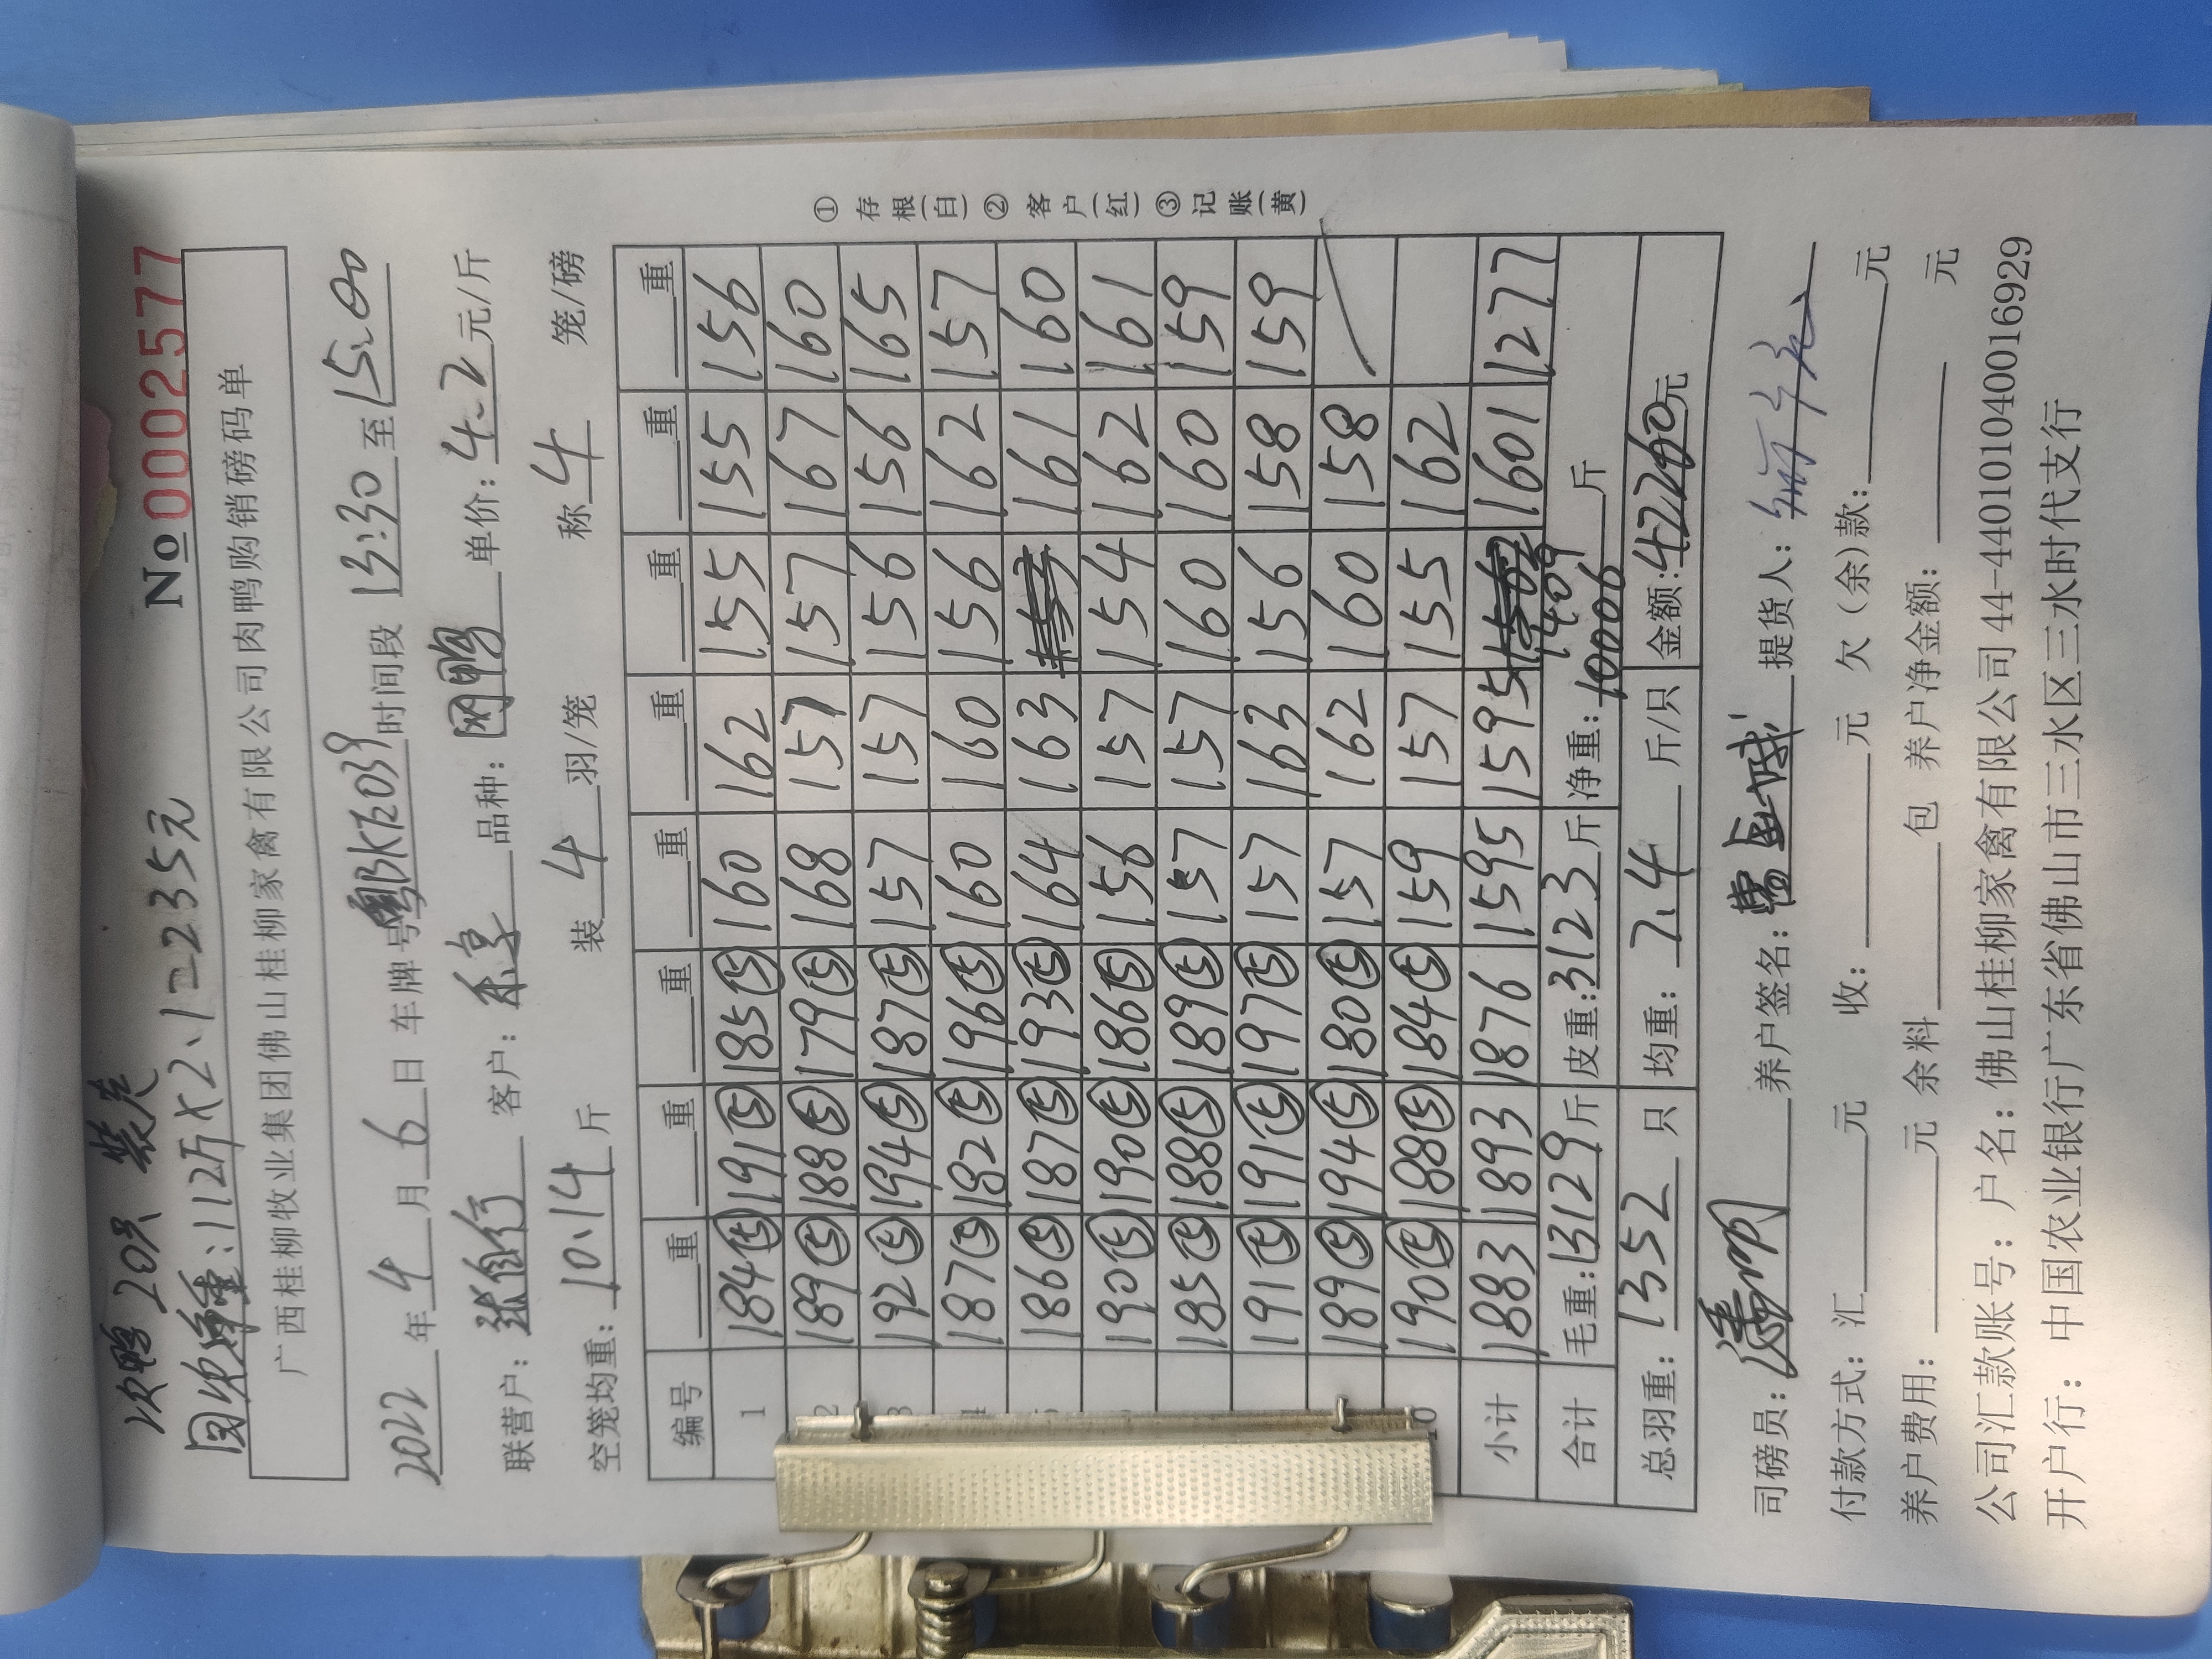 次鸭 20只 装走
回收称重:112斤×2.1=235元
No 0002577
广西桂柳牧业集团佛山桂柳家禽有限公司肉鸭购销磅码单
2022年4月6日 车牌号 粤BKE039 时间段 13:30 至 15:00
联营户: 客户: 品种: 鸭 单价: 4.2 元/斤
空笼均重: 10.14 斤 装 4 羽/笼 称 4 笼/磅
编号 重 重 重 重 重 重 重 重
1 184⑤ 191⑤ 185⑤ 160 162 155 155 156
2 189⑤ 188⑤ 179⑤ 168 157 157 167 160
3 192⑤ 194⑤ 187⑤ 157 157 156 156 165
4 187⑤ 182⑤ 196⑤ 160 160 156 162 157
186⑤ 187⑤ 193⑤ 164 163 161 160
190⑤ 190⑤ 186⑤ 156 157 154 162 161
185⑤ 188⑤ 189⑤ 157 157 160 160 159
191⑤ 191⑤ 197⑤ 157 163 156 158 159
189⑤ 194⑤ 180⑤ 157 162 160 158
10 190⑤ 188⑤ 184⑤ 159 157 155 162
小计 1883 1893 1876 1595 1595 1409 1601 1277
合计 毛重: 13129 斤 皮重: 3123 斤 净重: 10006 斤
总羽重: 1352 只 均重: 7.4 斤/只 金额: 42260元
司磅员: 养户签名: 提货人:
付款方式: 汇 元 收: 元 欠(余)款: 元
养户费用: 元 余料 包 养户净金额: 元
公司汇款账号: 户名: 佛山桂柳家禽有限公司 44-440101040016929
开户行: 中国农业银行广东省佛山市三水区三水时代支行
① 存根(白) ② 客户(红) ③ 记账(黄)